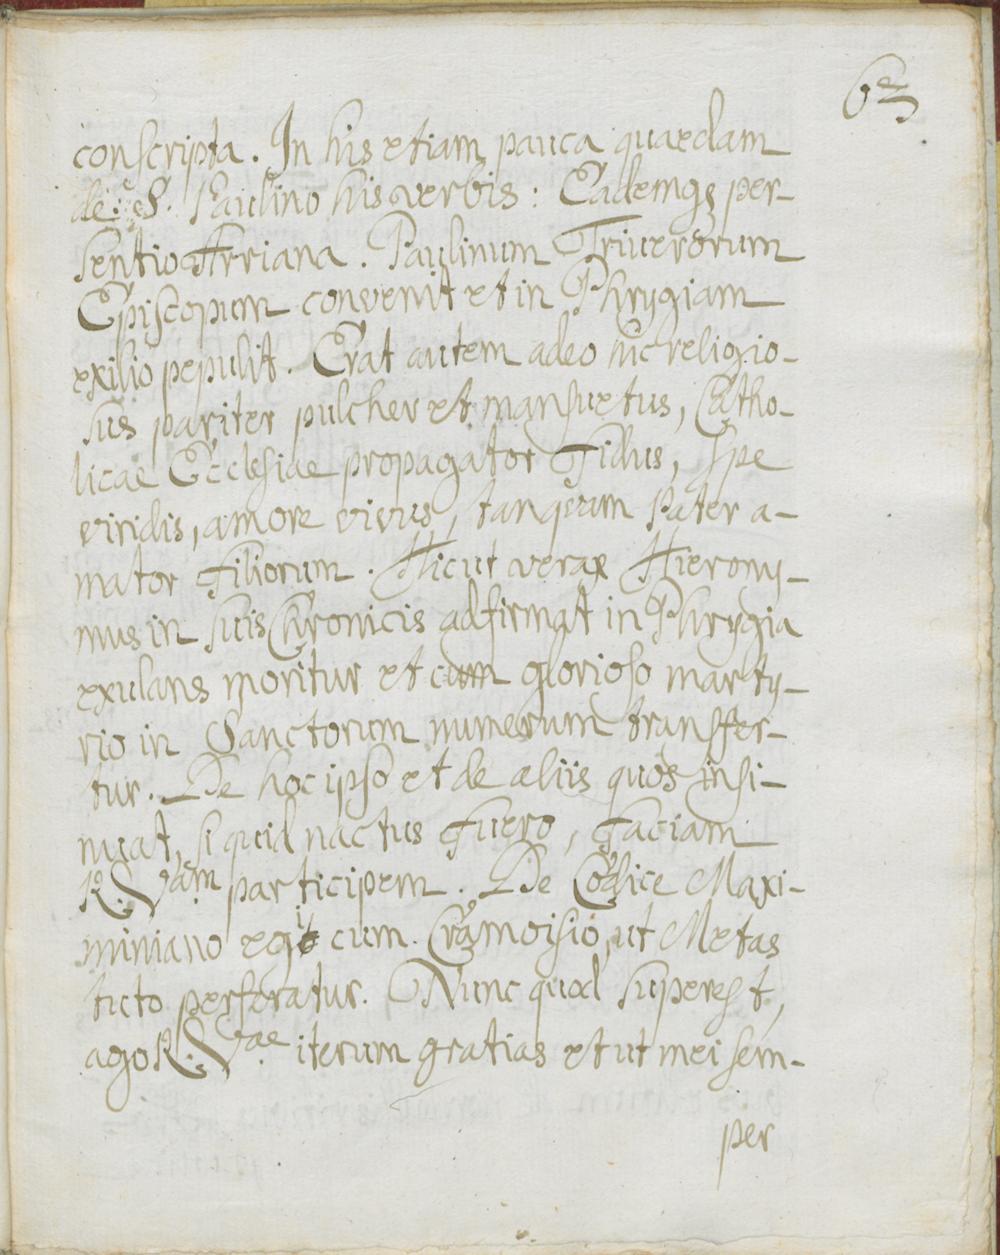 63
conscripta. In his etiam pauca quaedam
de S. Paulino his verbis: Eademq; per-
sentio Arriana. Paulinum Triuerorum
Episcopum convenit et in Phrygiam
exilio pepulit. Erat autem adeo hic religio-
sus pariter pulcher et mansuetus, Catho-
licae Ecclesiae propagator fidus, spe
viridis, amore vivus, tanquam Pater a-
mator filiorum. Hic ut verax Hierony-
mus in suis Chronicis adfirmat in Phrygia
exulans moritur et cum glorioso marty-
rio in Sanctorum numerum transffer-
tur. De hoc ipso et de aliis quos insi-
nuat, si quid nactus fuero, faciam
R. Vam participem. De Codice Maxi-
miniano egit cum Cramoisio, ut Metas
tuto perferatur. Nunc quod superest,
ago R. Vae iterum gratias et ut mei sem-
per